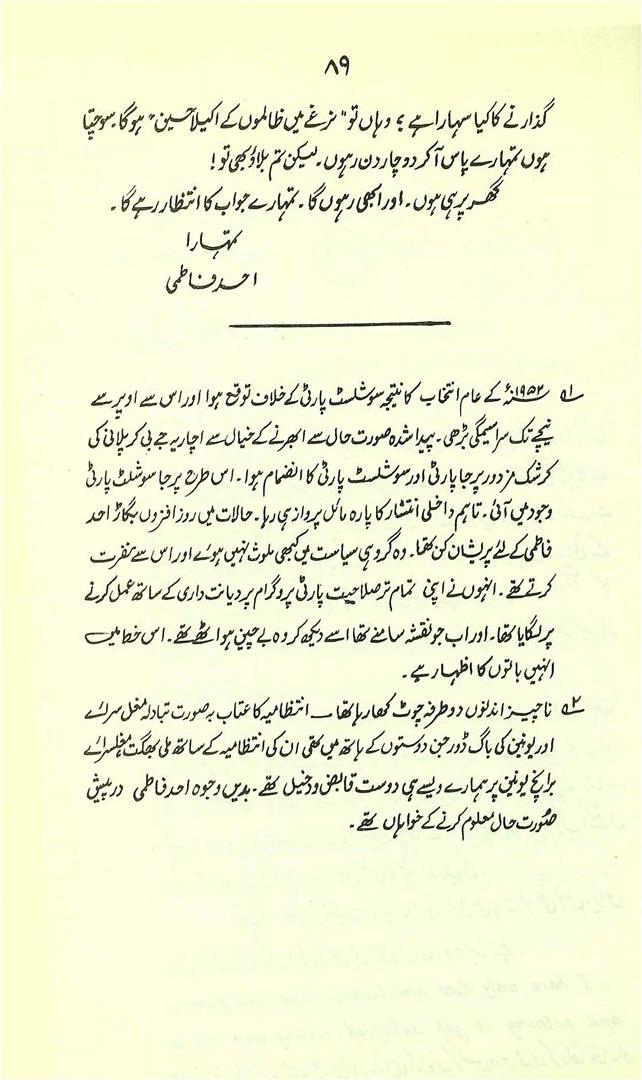 ۸۹
گذارنے کا کیا سہارا ہے؟ وہاں تو "نرغے میں ظالموں کے اکیلا حسین" ہوگا۔ سوچتا
ہوں تمہارے پاس آکر دو چار دن رہوں۔ لیکن تم بلاؤ بھی تو!
گھر پر ہی ہوں۔ اور ابھی رہوں گا۔ تمہارے جواب کا انتظار رہے گا۔
تمہارا
احمد فاطمی
۱؎ ۱۹۵۲ء کے عام انتخاب کا نتیجہ سوشلسٹ پارٹی کے خلاف توقع ہوا اور اس سے اوپر سے
نیچے تک سراسیمگی بڑھی۔ پیدا شدہ صورت حال سے ابھرنے کے خیال سے اچاریہ جے بی کرپلانی کی
کرشک مزدور پرجا پارٹی اور سوشلسٹ پارٹی کا انضمام ہوا۔ اس طرح پرجا سوشلسٹ پارٹی
وجود میں آئی۔ تاہم داخلی انتشار کا پارہ مائل پرواز ہی رہا۔ حالات میں روز افزوں بگاڑ احمد
فاطمی کے لئے پریشان کن تھا۔ وہ گروہی سیاست میں کبھی ملوث نہیں ہوئے اور اس سے نفرت
کرتے تھے۔ انہوں نے اپنی تمام تر صلاحیت پارٹی پروگرام پر دیانت داری کے ساتھ عمل کرنے
پر لگایا تھا۔ اور اب جو نقشہ سامنے تھا اسے دیکھ کر وہ بے چین ہو اٹھے تھے۔ اس خط میں
انہیں باتوں کا اظہار ہے۔
۲؎ ناچیز ان دنوں دو طرفہ چوٹ کھا رہا تھا — انتظامیہ کا عتاب بہ صورت تبادلہ مغل سرائے
اور یونین کی باگ ڈور جن دوستوں کے ہاتھ میں تھی ان کی انتظامیہ کے ساتھ ملی بھگت، مغلسرائے
برانچ یونین پر ہمارے ویسے ہی دوست قابض و دخیل تھے۔ بدیں وجوہ احمد فاطمی درپیش
صورت حال معلوم کرنے کے خواہاں تھے۔